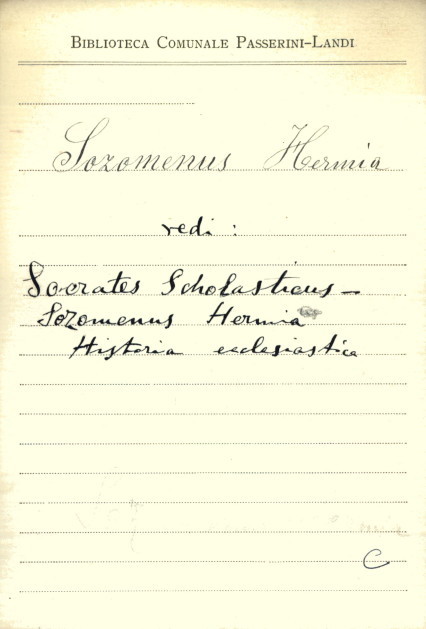 BIBLIOTECA COMUNALE PASSERINI-LANDI
Sozomenus Hermia
vedi :
Socrates Scholasticus -
Sozomenus Hermia
Historia ecclesiastica
C